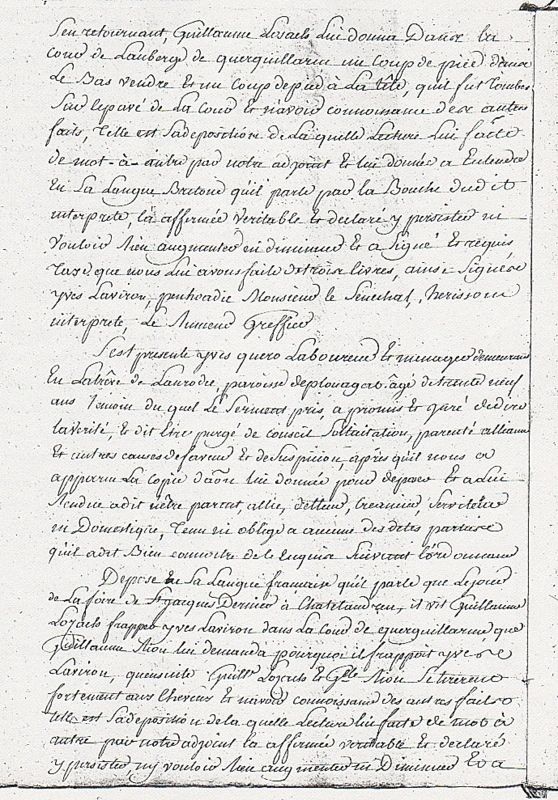 S'en retournant, Guillaume Lozach lui donna Dans la
Cour de Lauberge de querguillarme un Coup de pied dans
Le Bas ventre et un Coup de pied à La tête, quil fut tomber
Sur le pavé de la Cour et n'avoir connoissance d'es autres
faits, Telle est sa deposition de La quelle Lecture Lui faitte
de mot-à-autre par notre adjoint et lui donnée a Entendre
En La Langue Bretonne quil parle par La Bouche dudit
interprete, la affirmée veritable et declaré y persister ni
vouloir Rien augmenter ni diminuer et a Signé et requis
Taxe que nous Lui avons faite de trois livres, ainsi Signé
yves Laviron, Monsieur le Senechal, herisson
interprete, Le Greffier
S'est presenté yves quero Laboureur et menager demeurant
En La trêve de Lanrodec, paroisse de plouagat âgé de trente neuf
ans Temoin du quel Le Serment pris, a promis et juré de dire
la verité, et dit Etre purgé de conseil Sollicitation, parenté alliance
et autres causes de faveur et de Suspicion, après quil nous a
apparu La Copie daôn lui donnée pour deposer et a Lui
Rendue a dit n'être parent, allié, detteur, Creancier, Serviteur
ni Domestique, Tenu ni obligé a aucuns des dites parties
qu'il a dit Bien connoitre de le Enquis Suivant L'ordonnance
Depose En La Langue française quil parle que Le jour
de La foire de St jacques Dernier à Chatelaudren, il vit Guillaume
Lozach frapper yves Laviron dans La Cour de querguillarme que
Guillaume Riou lui demanda pourquoi il frappoit yves
Laviron, qu'ensuite Guille Lozach et Glle Riou Se tirerent
fortement aux Cheveux et n'avoir connoissance des autres faits
telle est Sa deposition de la quelle Lecture lui faite de mot à
autre par notre adjoint la affirmée veritable et declaré
y persister ny vouloir Rien augmenter ni Diminuer et a